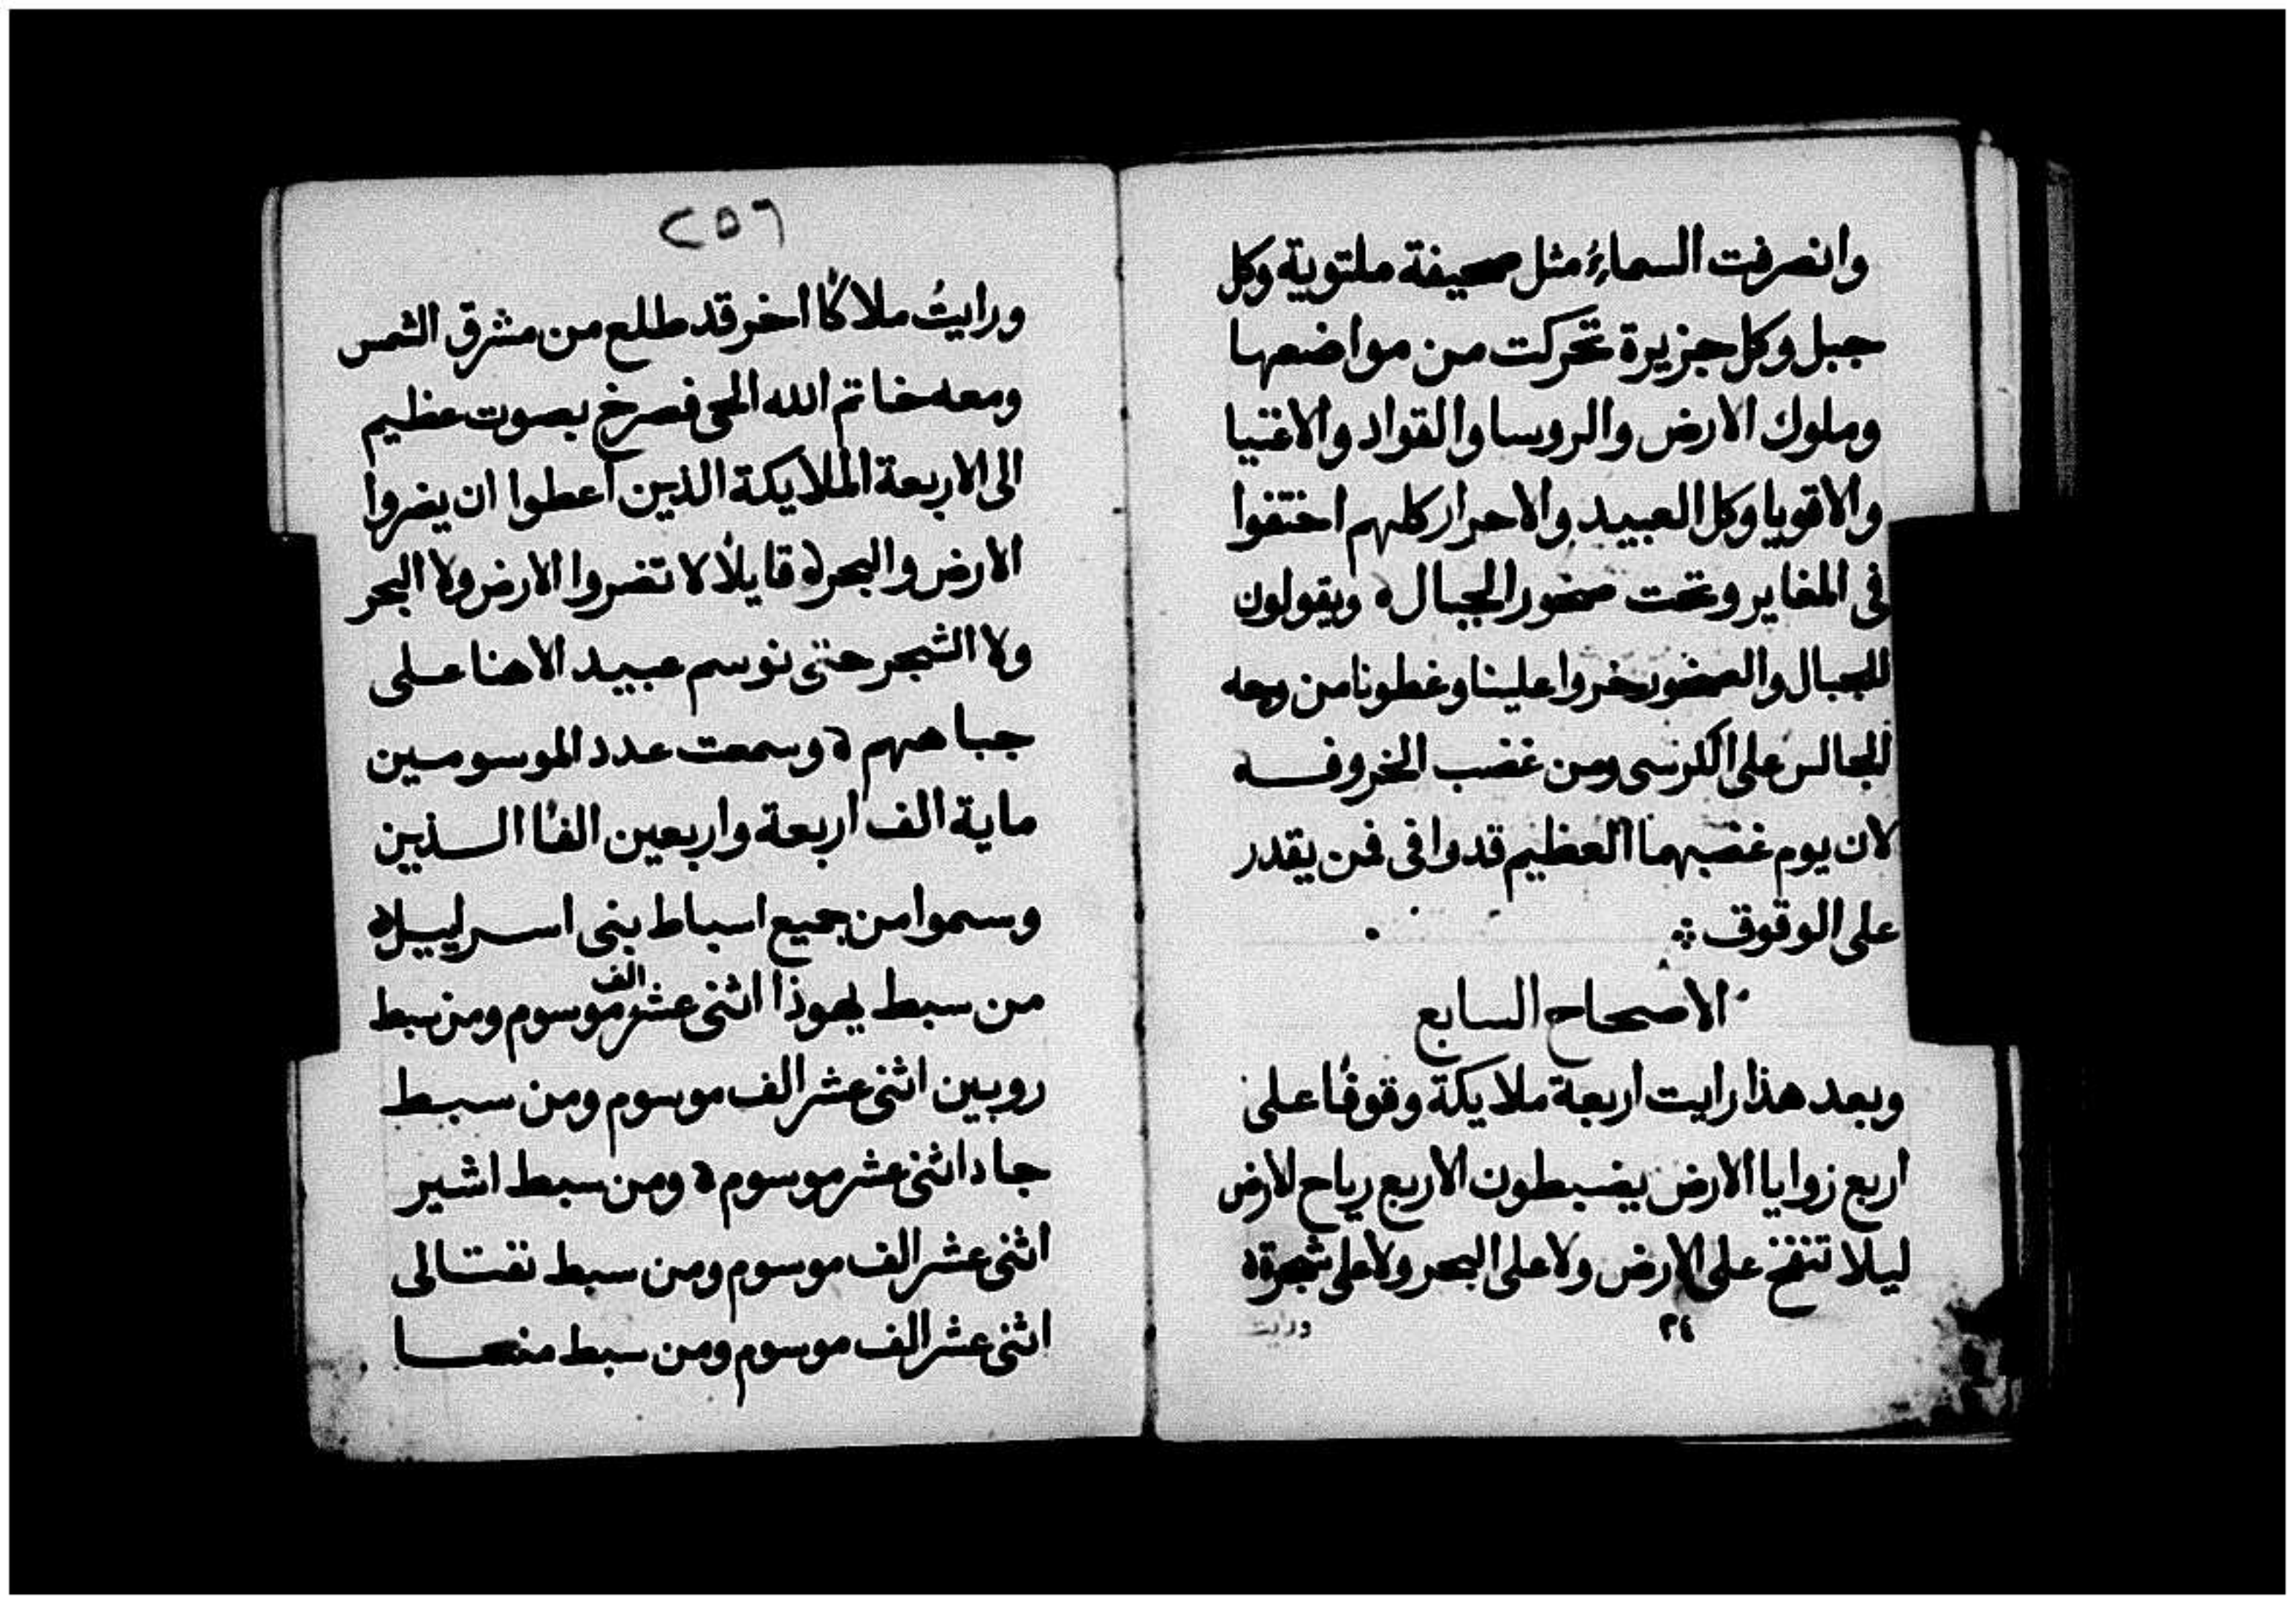 وانصرفت السماءُ مثل صحيفة ملتوية وكل
جبل وكل جزيرة تحركت من مواضعها
وملوك الارض والروسا والقواد والاغنيا
والاقويا وكل العبيد والاحرار كلهم اختفوا
فى المغاير وتحت صخور الجبال ه ويقولون
للجبال والصخور خروا علينا وغطونا من وجه
الجالس على الكرسى ومن غضب الخروف
لان يوم غضبهما العظيم قد وافى فمن يقدر
على الوقوف
الاصحاح السابع
وبعد هذا رايت اربعة ملايكة وقوفًا على
اربع زوايا الارض يضبطون الاربع رياح الارض
ليلا تنفخ على الارض ولا على البحر ولا على شجرة ه
٢٤
ورايت
٢٥٦
ورايتُ ملاكًا اخر قد طلع من مشرق الشمس
ومعه خاتم الله الحى فصرخ بصوت عظيم
الى الاربعة الملايكة الذين اعطوا ان يضروا
الارض والبحر ه قايلًا لا تضروا الارض ولا البحر
ولا الشجر حتى نوسم عبيد الاهنا على
جباههم ه وسمعت عدد الموسومين
ماية الف اربعة واربعين الفًا الذين
وسموا من جميع اسباط بنى اسراييل ه
من سبط يهوذا اثنى عشر الف موسوم ومن سبط
روبين اثنى عشر الف موسوم ومن سبط
جاد اثنى عشر موسوم ه ومن سبط اشير
اثنى عشر الف موسوم ومن سبط نفتالى
اثنى عشر الف موسوم ومن سبط